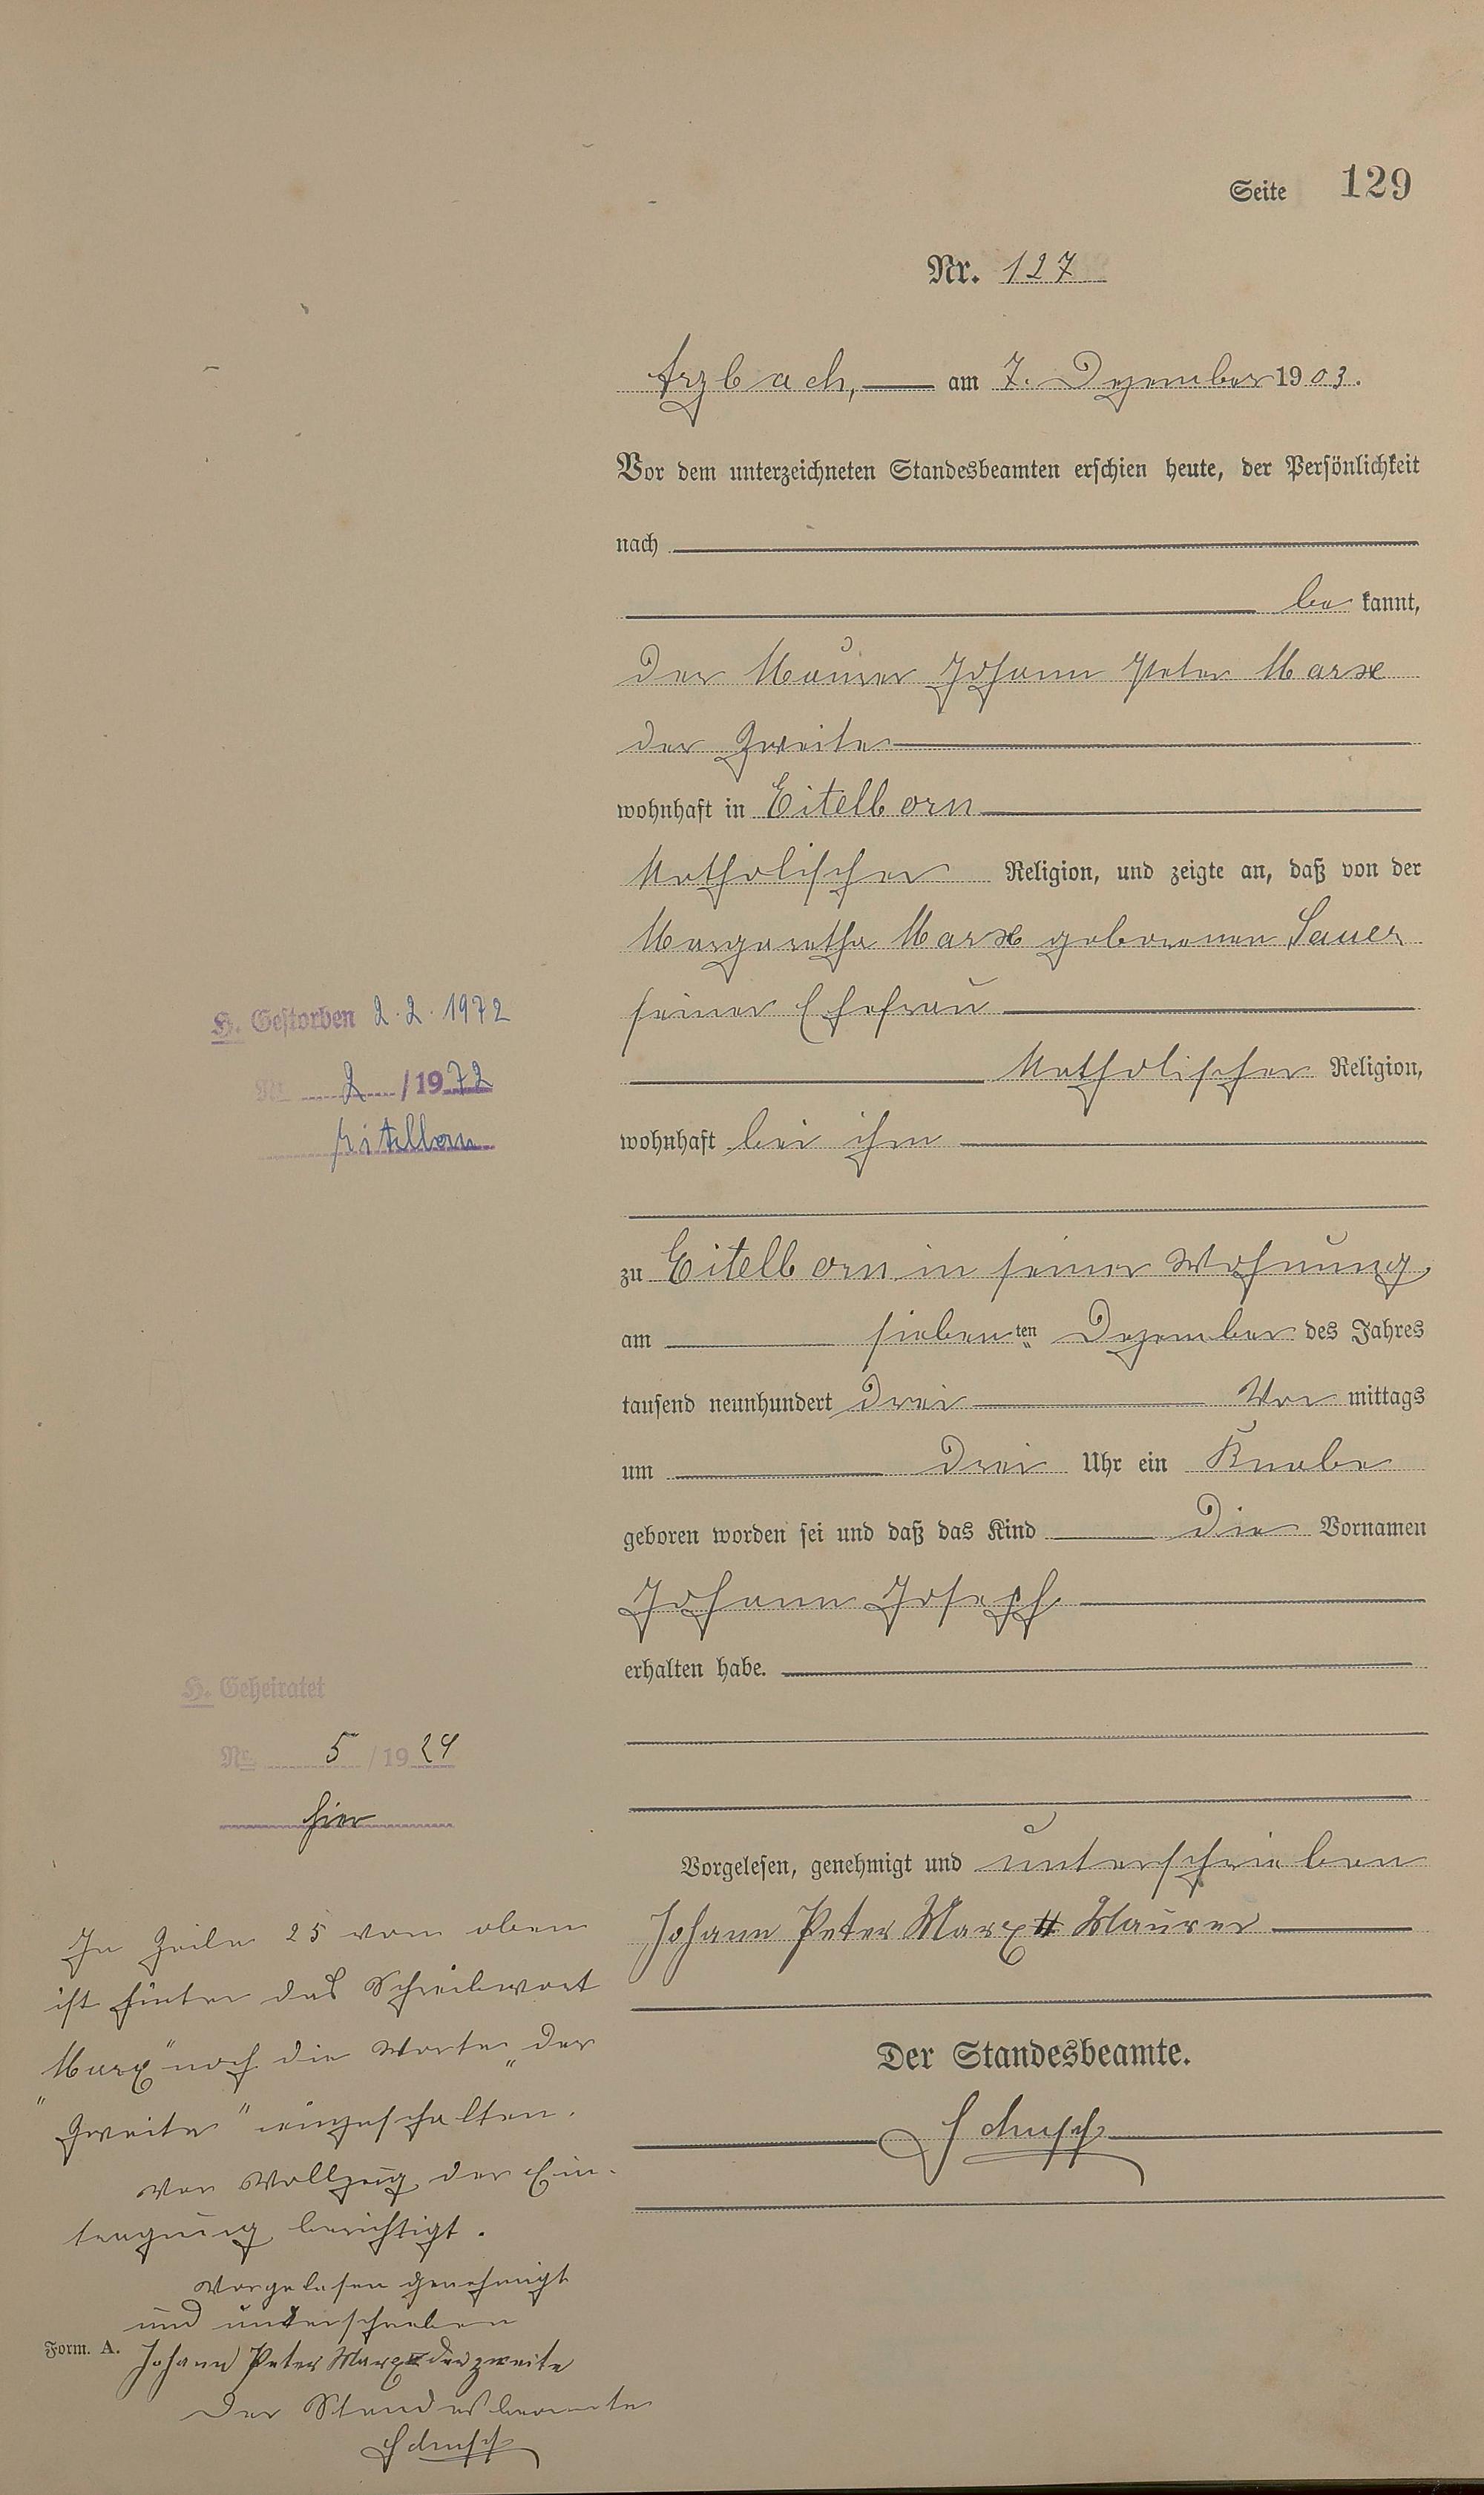 Seite 129
Nr. 127
Arzbach, am 7. Dezember 1903.
Vor dem unterzeichneten Standesbeamten erschien heute, der Persönlichkeit
nach
be kannt,
der Maurer Johann Peter Marx
der Zweite
wohnhaft in Eitelborn
katholischer Religion, und zeigte an, daß von der
Margaretha Marx geborenen Sauer
seiner Ehefrau
katholischer Religion,
wohnhaft bei ihm
zu Eitelborn in seiner Wohnung
am siebenten Dezember des Jahres
tausend neunhundert drei Vor mittags
um drei Uhr ein Knabe
geboren worden sei und daß das Kind die Vornamen
Johann Joseph
erhalten habe.
Vorgelesen, genehmigt und unterschrieben
Johann Peter Marx II Maurer
Der Standesbeamte.
H. Gestorben 2.2.1972
Nr. 2/1972
Eitelborn
H. Geheiratet
Nr. 5/1929
hier
In Zeile 25 von oben
ist hinter das Schreibwort
"Marx" noch die Worte "der
Zweite" einzuschalten.
Vor Vollzug der Ein-
tragung berichtigt.
Vorgelesen genehmigt
und unterschrieben
Form. A.
Johann Peter Marx II der zweite
Der Standesbeamte